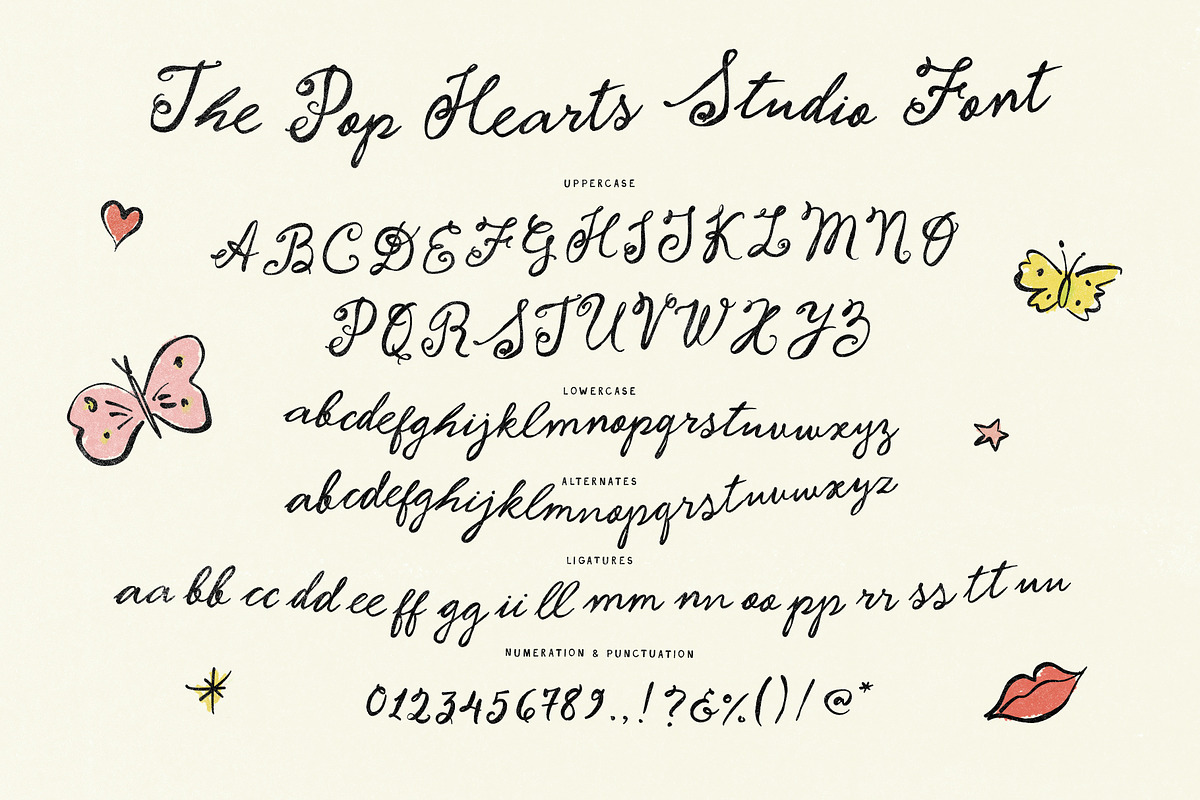 The Pop Hearts Studio Font
UPPERCASE
ABCDEFGHIJKLMNO
PQRSTUVWXYZ
LOWERCASE
abcdefghijklmnopqrstuvwxyz
ALTERNATES
abcdefghijklmnopqrstuvwxyz
LIGATURES
aa bb cc dd ee ff gg ii ll mm nn oo pp rr ss tt uu
NUMERATION & PUNCTUATION
0123456789.,!?&%()/@*